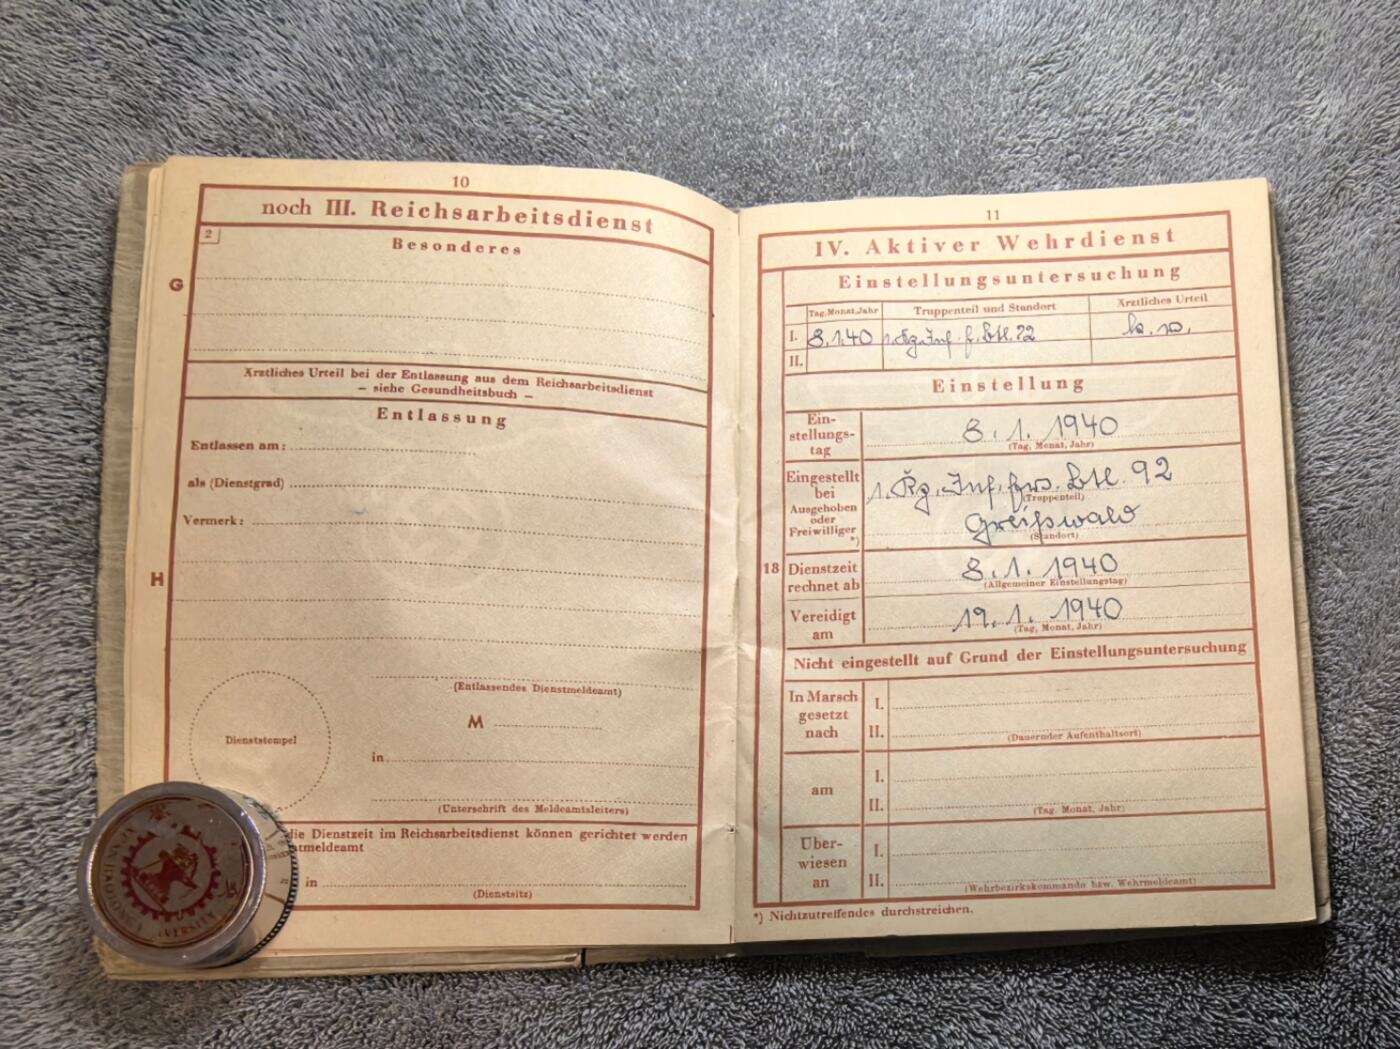 10
noch III. Reichsarbeitsdienst
2
Besonderes
G
Ärztliches Urteil bei der Entlassung aus dem Reichsarbeitsdienst
– siehe Gesundheitsbuch –
Entlassung
Entlassen am:
als (Dienstgrad)
Vermerk:
H
(Entlassendes Dienstmeldeamt)
M
Dienststempel
in
(Unterschrift des Meldeamtsleiters)
die Dienstzeit im Reichsarbeitsdienst können gerichtet werden
in
(Dienstsitz)
11
IV. Aktiver Wehrdienst
Einstellungsuntersuchung
Tag, Monat, Jahr Truppenteil und Standort Ärztliches Urteil
I. 8.1.40 Btl. 92 k. v.
II.
Einstellung
Ein-
stellungs-
tag
8. 1. 1940
(Tag, Monat, Jahr)
Eingestellt
bei
Ausgehoben
oder
Freiwilliger
*)
1. Inf. Btl. 92
(Truppenteil)
Greifswald
(Standort)
18
Dienstzeit
rechnet ab
8. 1. 1940
(Allgemeiner Einstellungstag)
Vereidigt
am
19. 1. 1940
(Tag, Monat, Jahr)
Nicht eingestellt auf Grund der Einstellungsuntersuchung
In Marsch
gesetzt
nach
I.
II.
(Dauernder Aufenthaltsort)
am
I.
II.
(Tag. Monat, Jahr)
Über-
wiesen
an
I.
II.
(Wehrbezirkskommando bzw. Wehrmeldeamt)
*) Nichtzutreffendes durchstreichen.